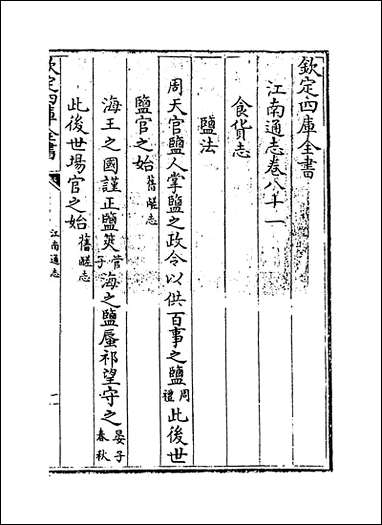 欽定四庫全書
江南通志卷八十一
食貨志
鹽法
周天官鹽人掌鹽之政令以供百事之鹽周禮此後世
鹽官之始舊鹺志
海王之國謹正鹽筴管子海之鹽蜃祈望守之晏子春秋
此後世場官之始舊鹺志
欽定四庫全書
江南通志
一